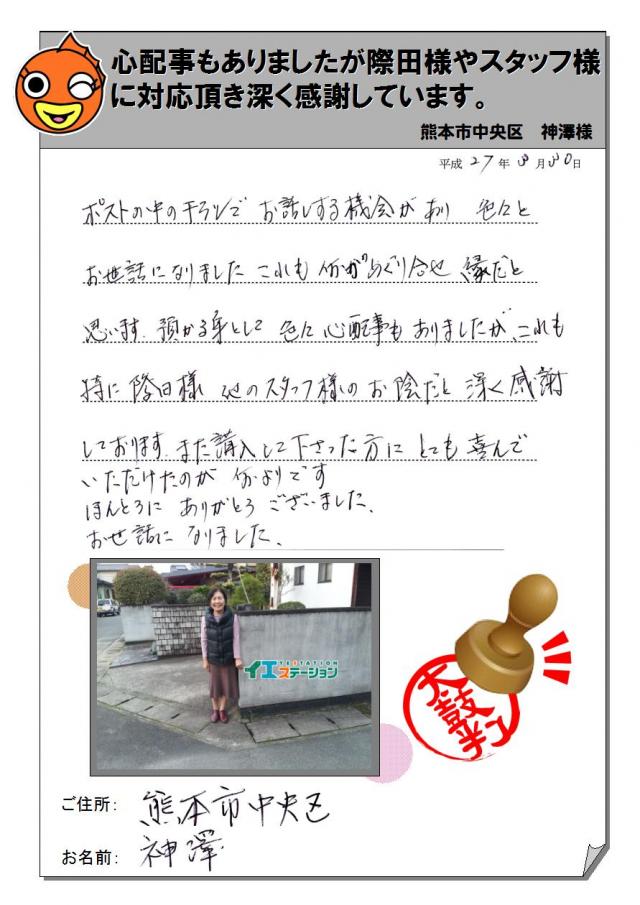 心配事もありましたが際田様やスタッフ様
に対応頂き深く感謝しています。
熊本市中央区 神澤様
平成 27年 3月30日
ポストの中のチラシで お話しする機会があり 色々と
お世話になりました これも 何かのめぐり合せ 縁だと
思います. 預かる身として 色々 心配事も ありましたが、これも
特に 際田様 他のスタッフ様の お陰だと 深く感謝
しております. また購入して下さった方に とても 喜んで
いただけたのが 何よりです
ほんとうに ありがとう ございました、
お世話に なりました、
YESTATION
イエステーション
太鼓判
ご住所: 熊本市中央区
お名前: 神澤